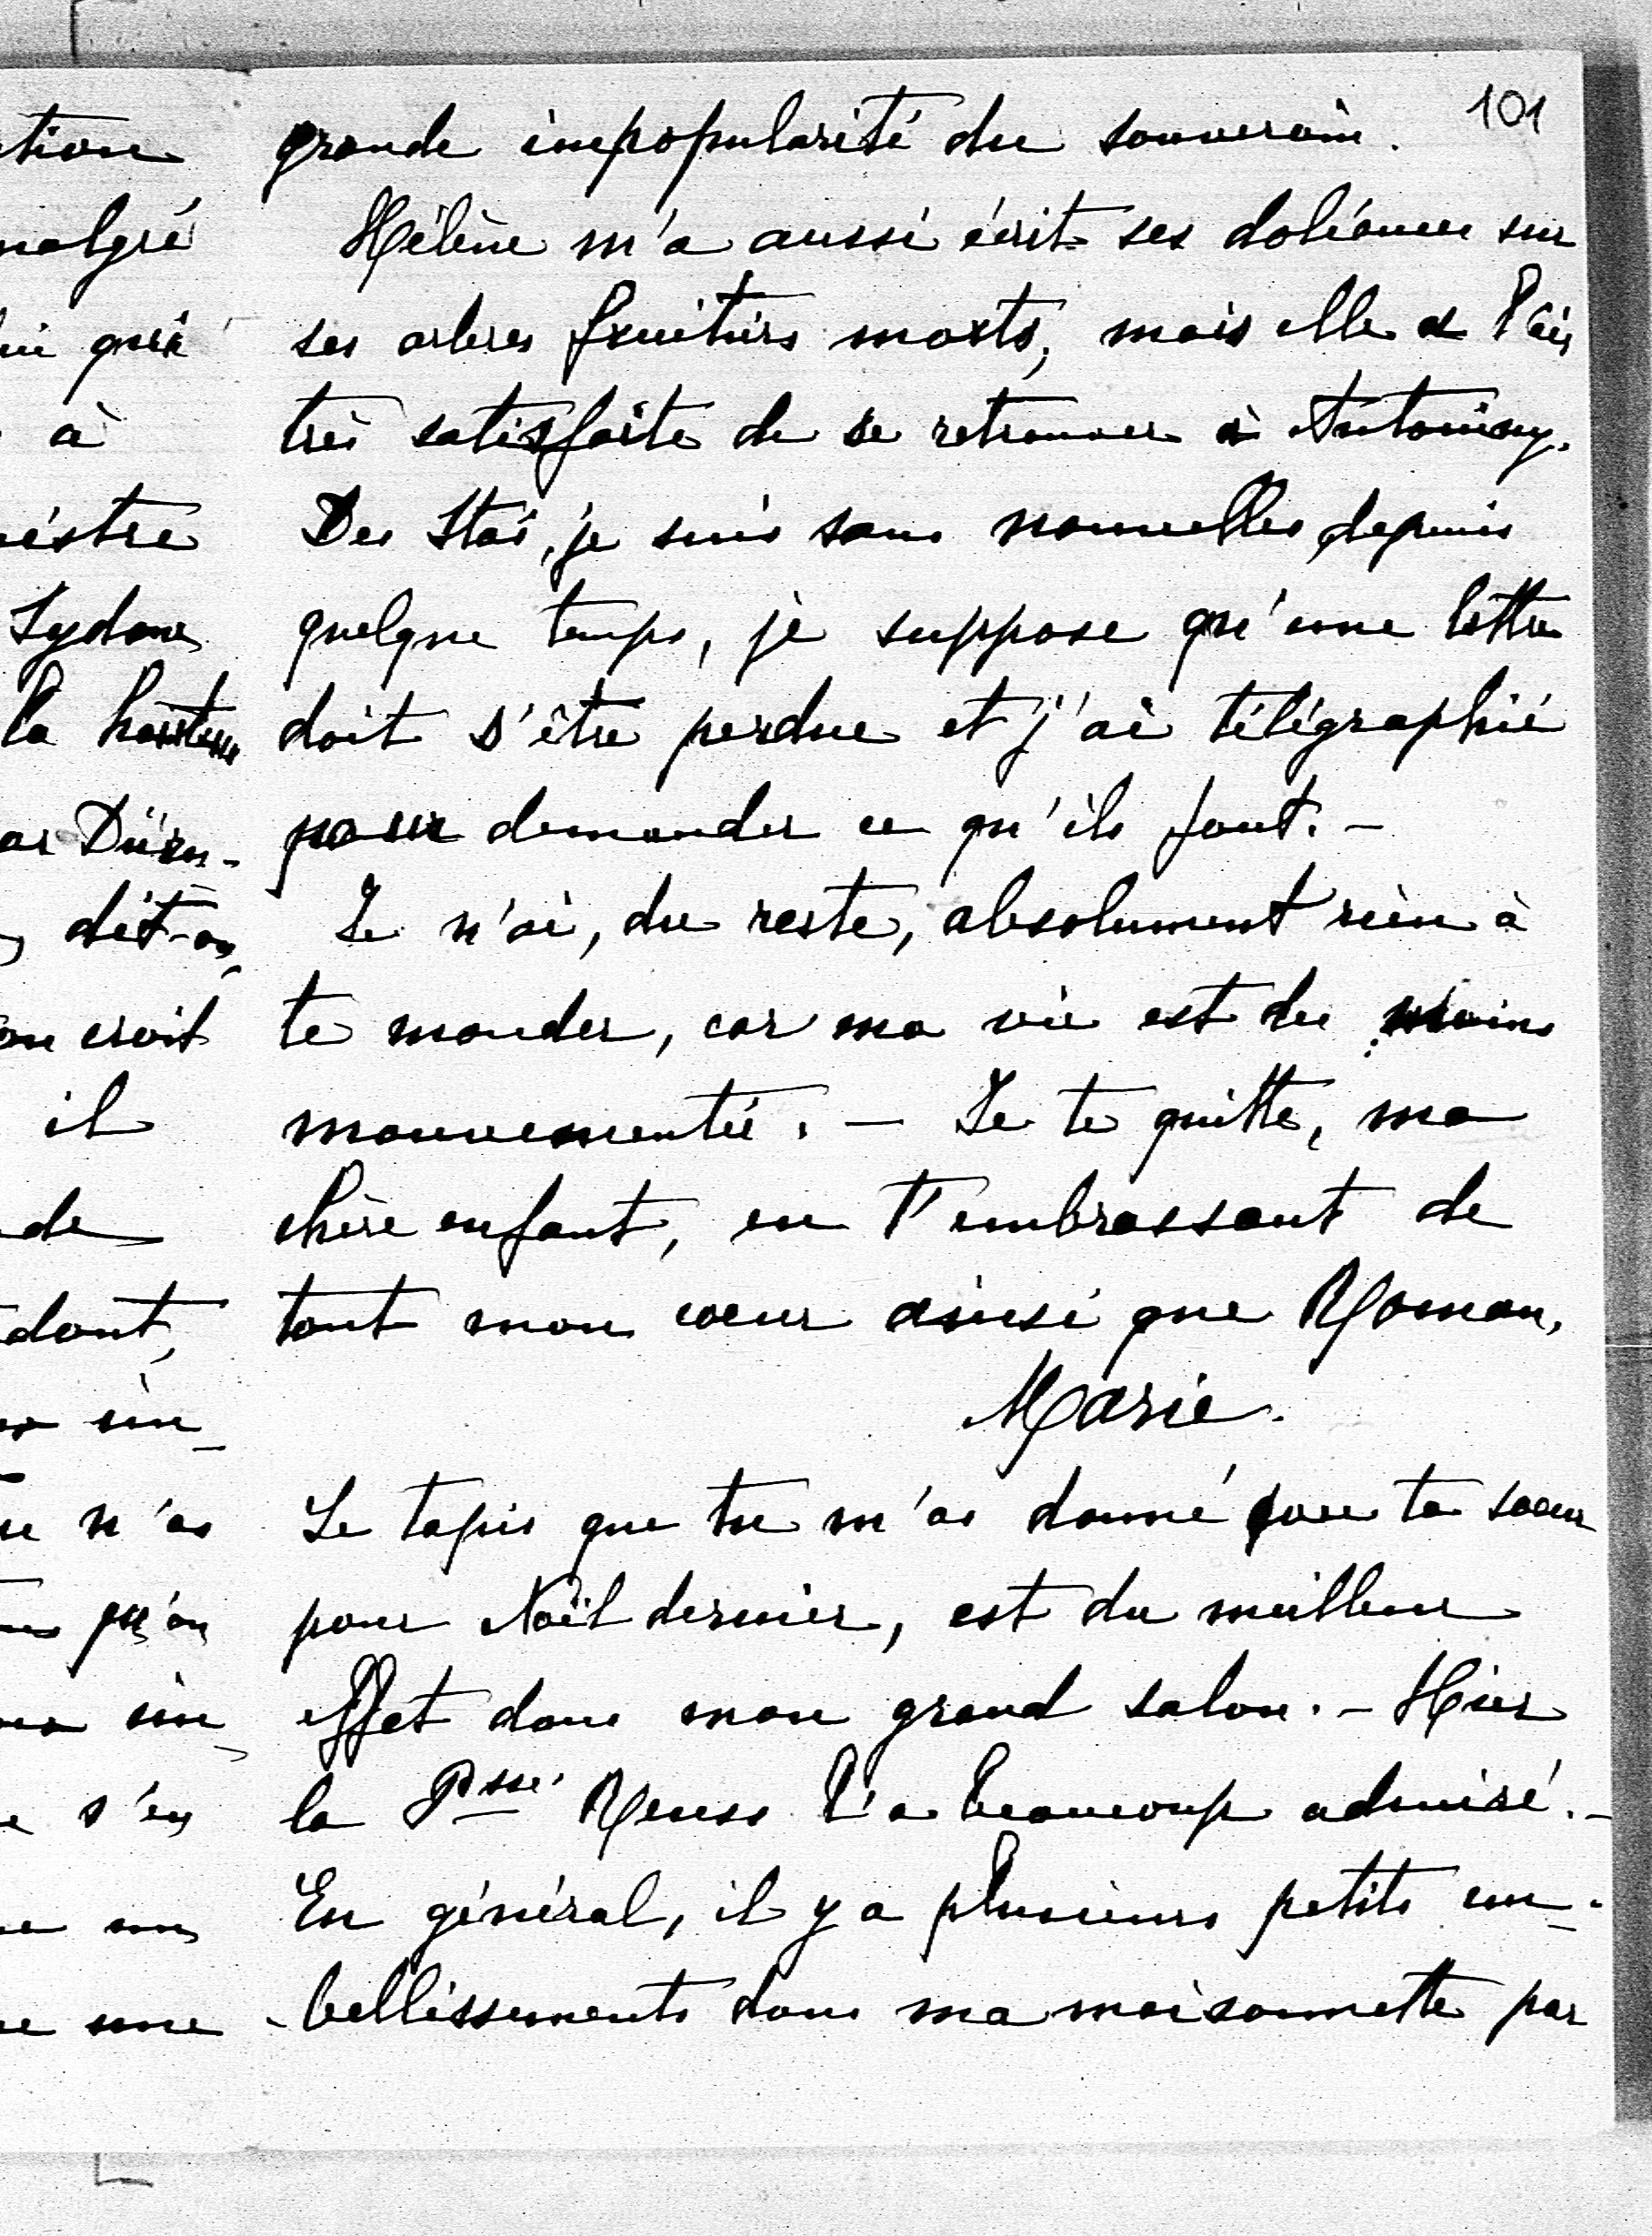 101
grande impopularité du souverain.
Hélène m'a aussi écrit ses doléances sur
ses arbres fruitiers morts, mais elle a l'air
très satisfaite de se retrouver à Antoniny.
Des Staś, je suis sans nouvelles depuis
quelque temps, je suppose qu'une lettre
doit s'être perdue et j'ai télégraphié
pour demander ce qu'ils font. –
Je n'ai, du reste, absolument rien à
te mander, car ma vie est des moins
mouvementée. – Je te quitte, ma
chère enfant, en t'embrassant de
tout mon coeur ainsi que Roman.
Marie.
Le tapis que tu m'as donné avec ta soeur
pour Noël dernier, est du meilleur
effet dans mon grand salon. – Hier
la Psse Reuss l'a beaucoup admiré. –
En général, il y a plusieurs petits em-
-bellissements dans ma maisonnette par
tion
malgré
qu'à
à
Sydone
la hauteur
dit-on,
on croit
il
de
dont,
n'as
qu'on
s'en
une